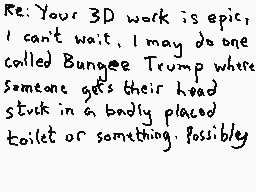 Re: Your 3D work is epic,
I can't wait, I may do one
called Bungee Trump where
someone gets their head
stuck in a badly placed
toilet or something. Possibley